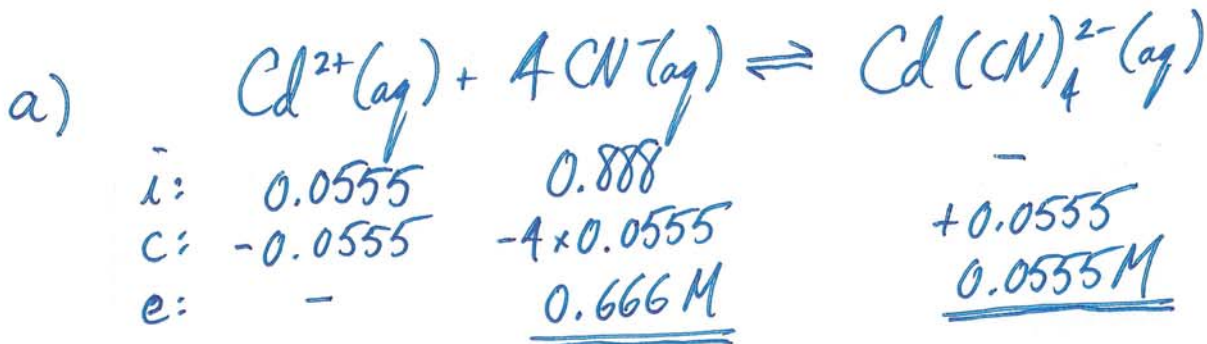 a) Cd²⁺(aq) + 4 CN⁻(aq) ⇌ Cd(CN)₄²⁻(aq)
i: 0.0555 0.888 -
c: -0.0555 -4×0.0555 +0.0555
e: - 0.666 M 0.0555 M